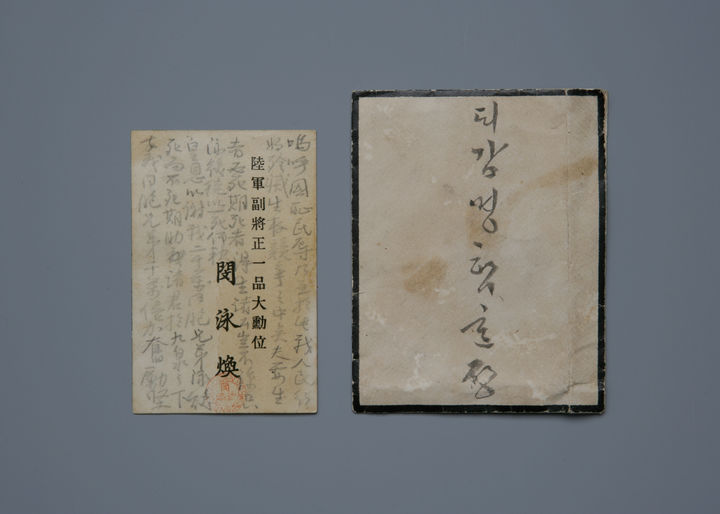 陸軍副將正一品大勳位
閔泳煥
嗚呼國恥民辱乃至於此我人民行
將殄滅生存競爭之中矣夫要生
者必死期死者得生諸公豈不
泳煥徒以一死仰報
皇恩以謝我二千萬同胞兄弟泳煥
死而不死期助諸君於九泉之下
幸我同胞兄弟千萬億加奮勵堅
감명함